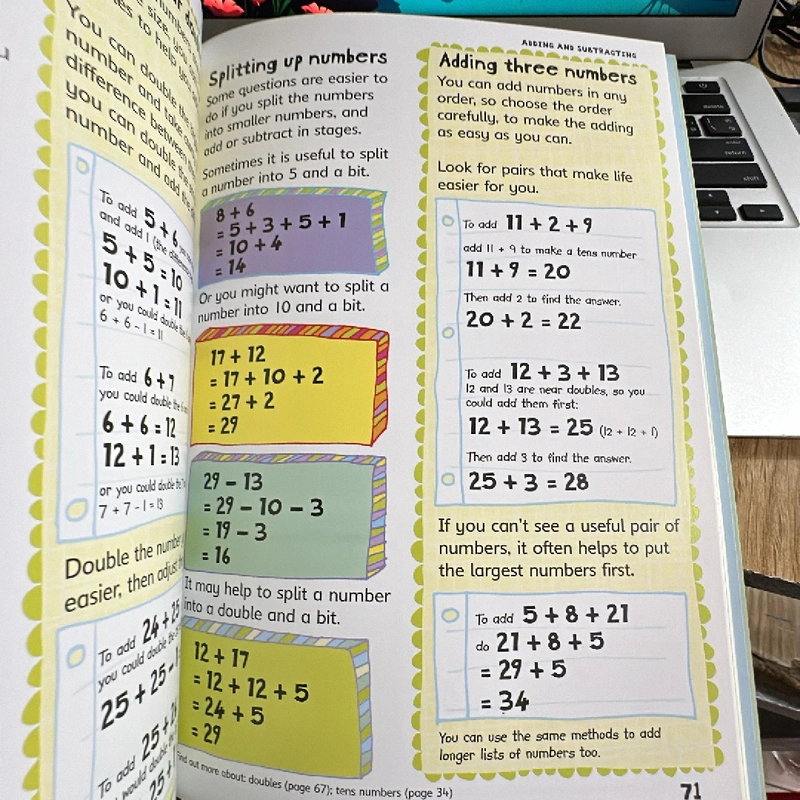 You can double the
number and take
difference between
you can double the
number and add the
To add 5 + 6
and add 1 (the
5 + 5 = 10
10 + 1 = 11
or you could double
6 + 6 - 1 = 11
To add 6 + 7
you could double the
6 + 6 = 12
12 + 1 = 13
or you could double the
7 + 7 - 1 = 13
Double the number
easier, then adjust
To add 24 + 25
you could double the
25 + 25 - 1
To add 25 +
would double
25 +
Splitting up numbers
Some questions are easier to
do if you split the numbers
into smaller numbers, and
add or subtract in stages.
Sometimes it is useful to split
a number into 5 and a bit.
8 + 6
= 5 + 3 + 5 + 1
= 10 + 4
= 14
Or you might want to split a
number into 10 and a bit.
17 + 12
= 17 + 10 + 2
= 27 + 2
= 29
29 - 13
= 29 - 10 - 3
= 19 - 3
= 16
It may help to split a number
into a double and a bit.
12 + 17
= 12 + 12 + 5
= 24 + 5
= 29
Find out more about: doubles (page 67); tens numbers (page 34)
ADDING AND SUBTRACTING
Adding three numbers
You can add numbers in any
order, so choose the order
carefully, to make the adding
as easy as you can.
Look for pairs that make life
easier for you.
To add 11 + 2 + 9
add 11 + 9 to make a tens number
11 + 9 = 20
Then add 2 to find the answer.
20 + 2 = 22
To add 12 + 3 + 13
12 and 13 are near doubles, so you
could add them first:
12 + 13 = 25 (12 + 12 + 1)
Then add 3 to find the answer.
25 + 3 = 28
If you can't see a useful pair of
numbers, it often helps to put
the largest numbers first.
To add 5 + 8 + 21
do 21 + 8 + 5
= 29 + 5
= 34
You can use the same methods to add
longer lists of numbers too.
71
delete
return